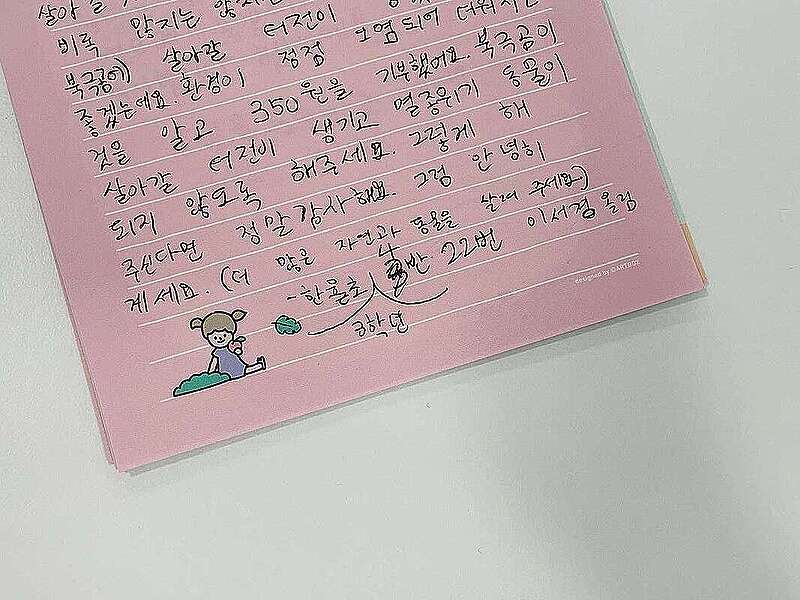 살아갈
비록 많지는 않지만
북극곰에) 살아갈 터전이
좋겠는데요. 환경이 점점 오염되어 더워지는
것을 알고 350원을 기부했어요. 북극곰이
살아갈 터전이 생기고 멸종위기 동물이
되지 않도록 해주세요. 그렇게 해
주신다면 정말 감사해요. 그럼 안녕히
계세요. (더 많은 자연과 동물을 살려 주세요.)
-한율초 반 22번 이서경 올림
3학년
designed by ©ARTBOZ